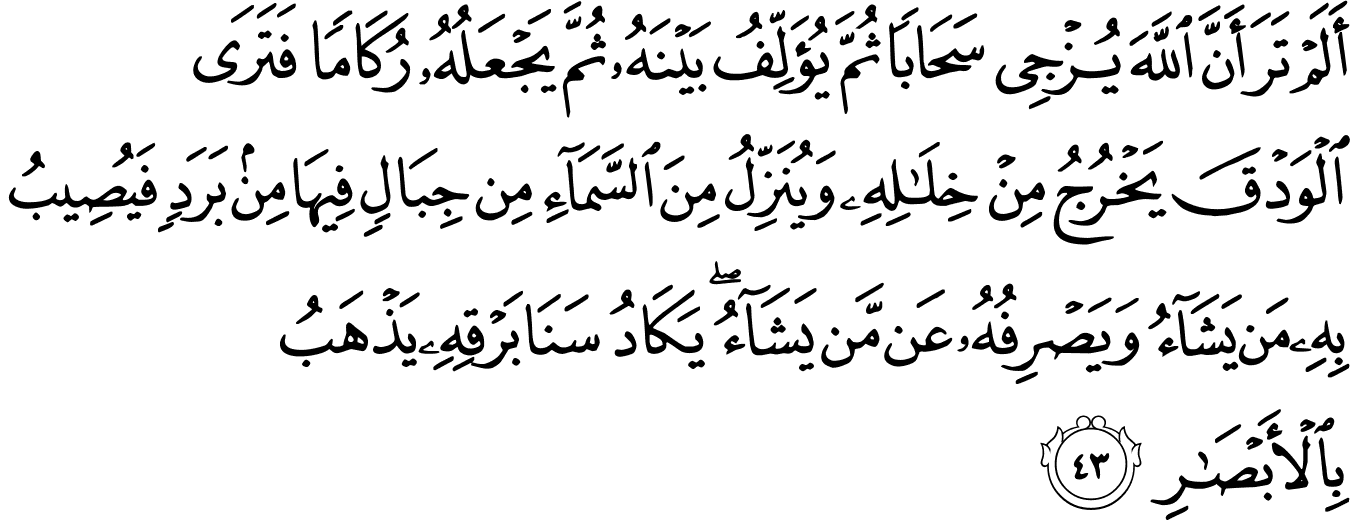 أَلَمْ تَرَ أَنَّ ٱللَّهَ يُزْجِى سَحَابًا ثُمَّ يُؤَلِّفُ بَيْنَهُۥ ثُمَّ يَجْعَلُهُۥ رُكَامًا فَتَرَى
ٱلْوَدْقَ يَخْرُجُ مِنْ خِلَـٰلِهِۦ وَيُنَزِّلُ مِنَ ٱلسَّمَآءِ مِن جِبَالٍ فِيهَا مِنۢ بَرَدٍ فَيُصِيبُ
بِهِۦ مَن يَشَآءُ وَيَصْرِفُهُۥ عَن مَّن يَشَآءُ ۖ يَكَادُ سَنَا بَرْقِهِۦ يَذْهَبُ
بِٱلْأَبْصَـٰرِ ٤٣